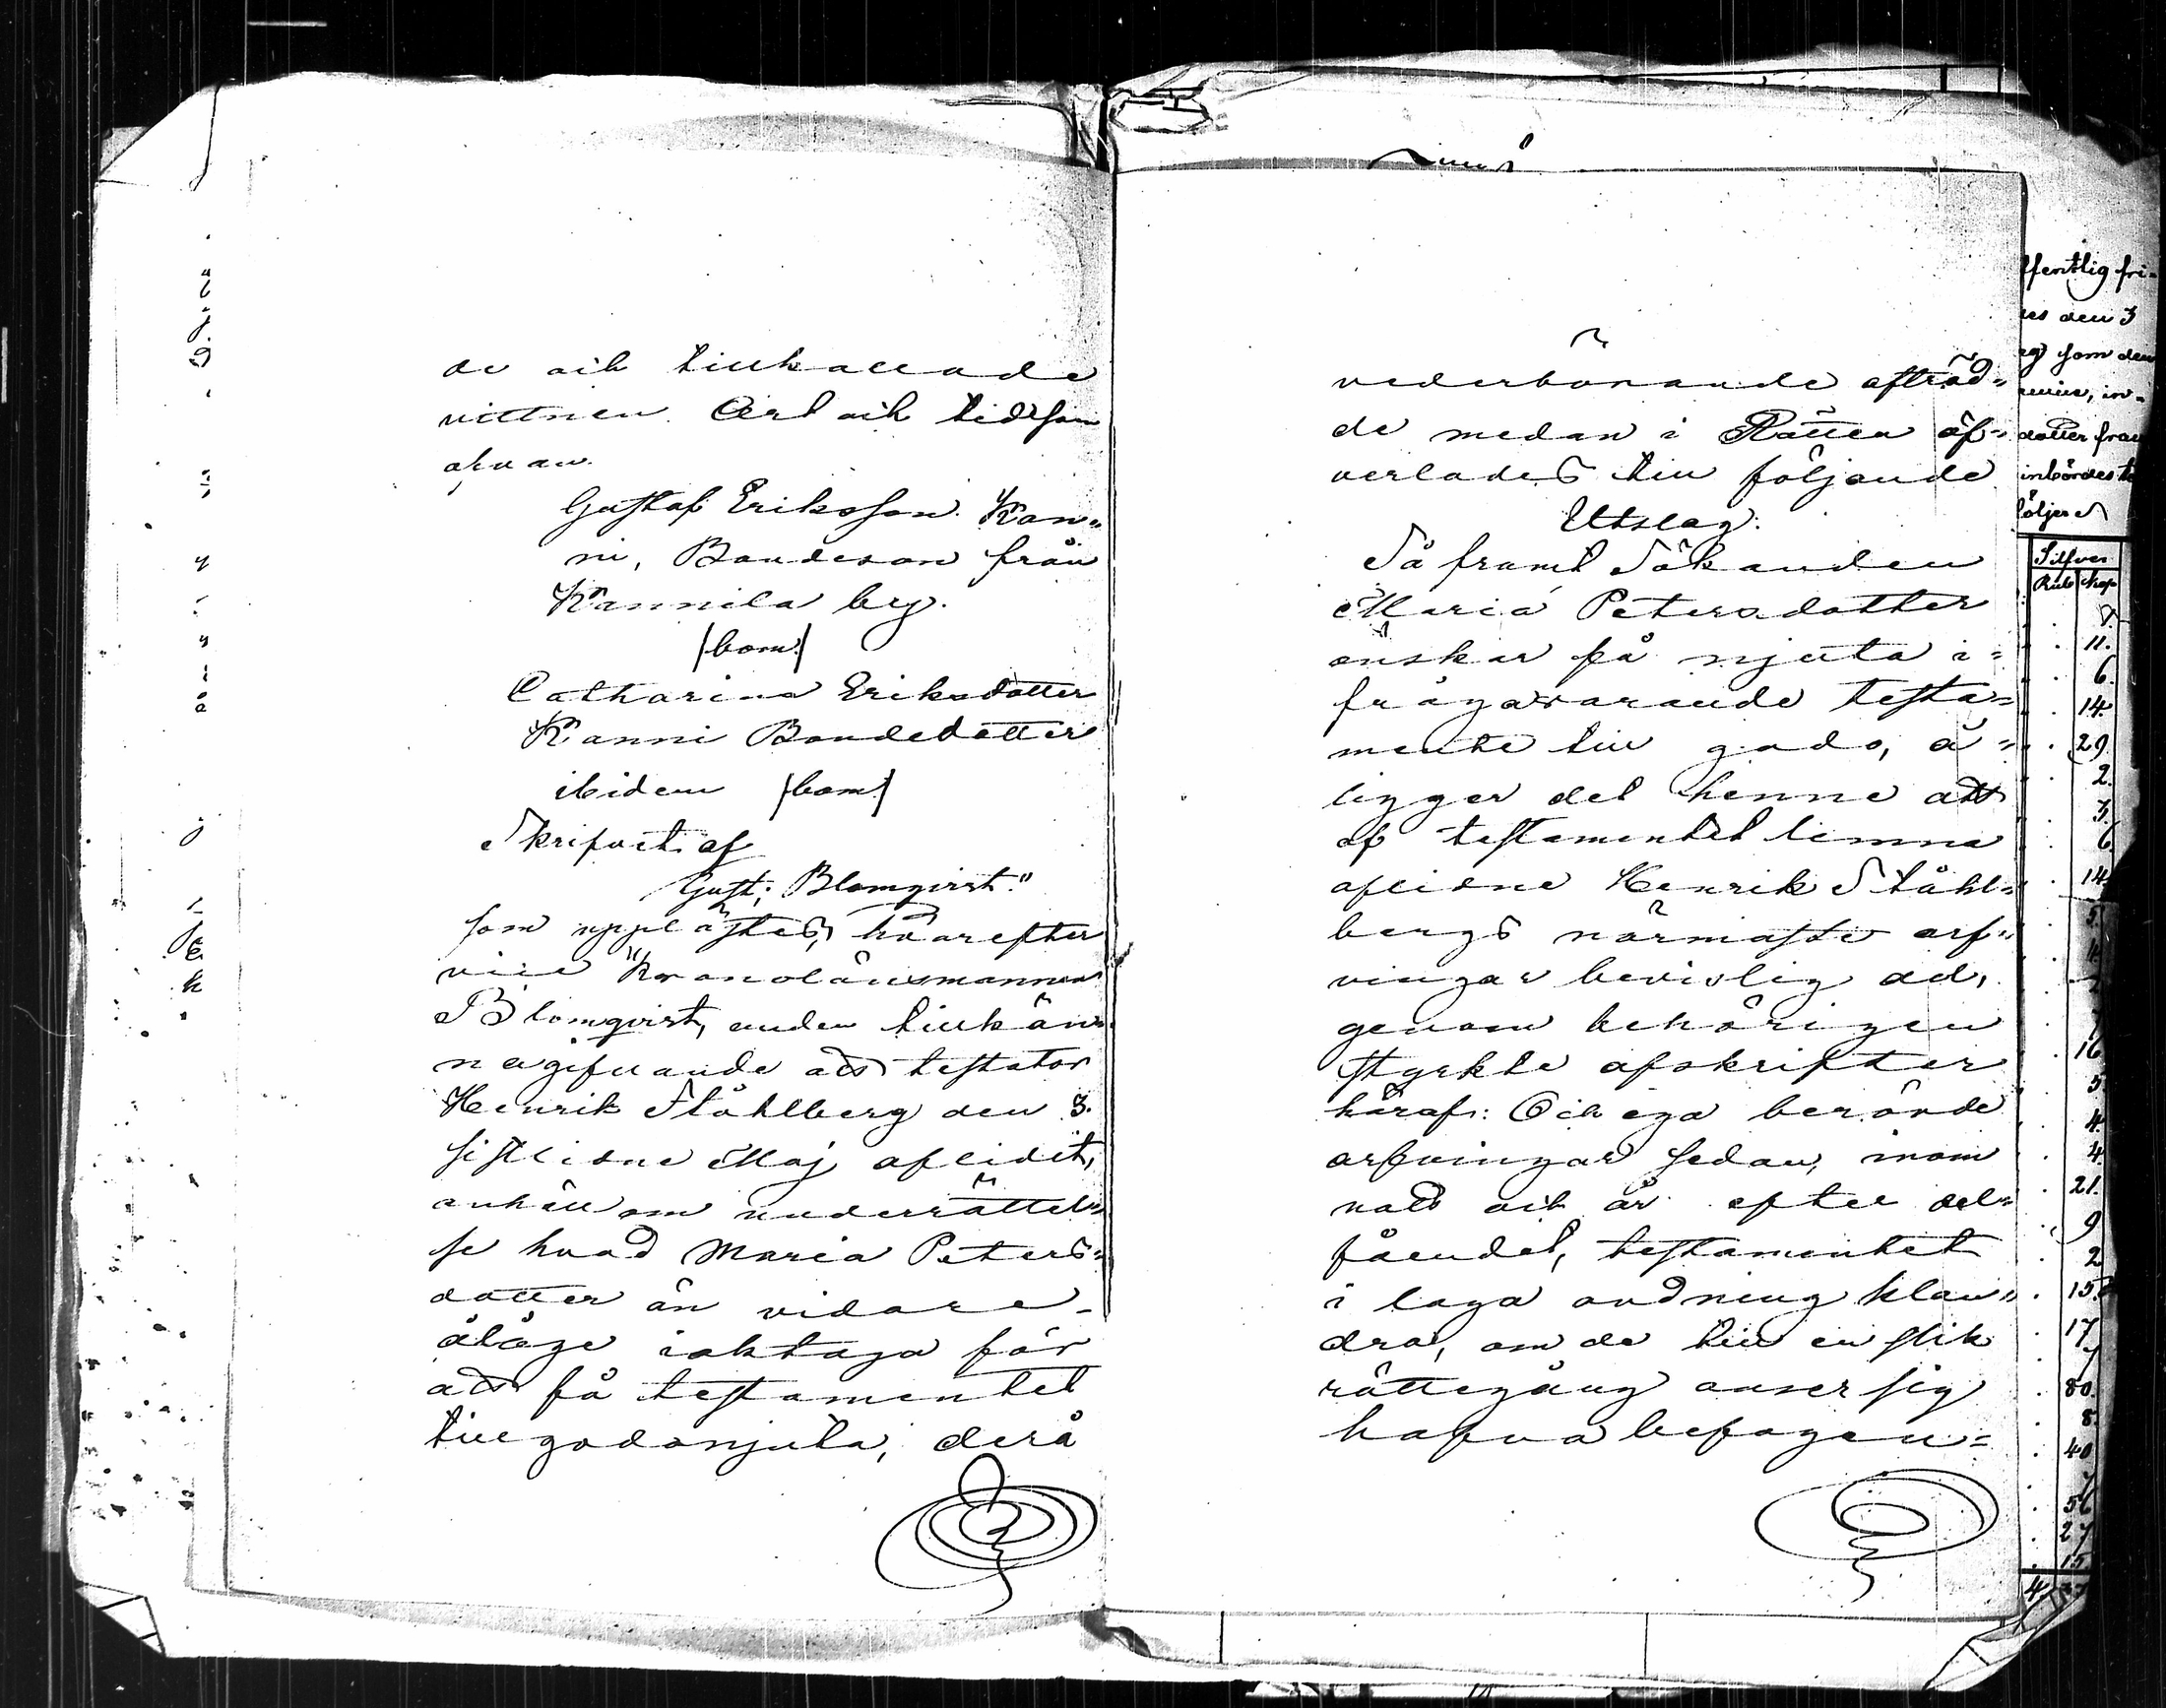 de och tillkallade
vittnen. Årl och tid som
ofvan.
Gustaf Eriksson Kan-
ni, Bondeson från
Kannila by.
/bom/
Catharina Eriksdotter
Kanni Bondedotter
ibidem /bom/
Skrifvit af
Gust: Blomqvist."
som upplästes, hvarefter
vice Kronolänsmannen
Blomqvist, under tillkän-
nagifvande att testator
Henrik Ståhlberg den 3.
sistlidne Maj aflidit,
anhöll om underrättel-
se hvad Maria Peters-
dotter än vidare
ålåge iakttaga för
att få testamentet
tillgodonjuta, derå
vederbörande afträd-
de medan i Rätten öf-
verlades till följande
Utslag:
Så framt Sökanden
Maria Petersdotter
önskar få njuta i-
frågavarande testa-
mente till godo, å-
ligger det henne att
af testamentet lemna
aflidne Henrik Ståhl-
bergs närmaste arf-
vingar bevislig del,
genom behörigen
styrkte afskrifter
häraf: Och ega berörde
arfvingar sedan, inom
natt och år efter del-
fåendet, testamentet
i laga ordning klan-
dra, om de till en slik
rättegång anser sig
hafva befogen-
ffentlig fri-
es den 3
eg som den
in-
dotter från
inbördes te
följer
Silfver
Rub Kop
11.
6.
14.
29.
2.
3.
6.
14.
5.
16
5.
4.
4.
21.
9
2
15.
17
80.
8.
40
56
27
15.
4